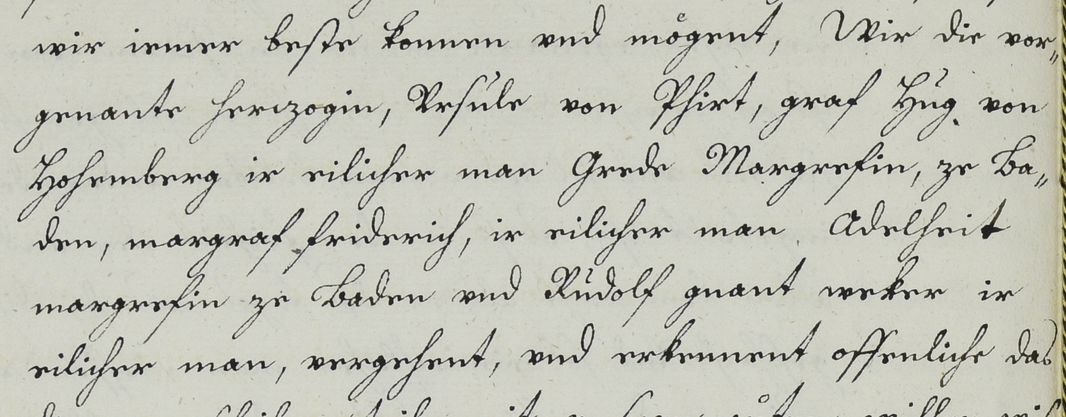 wir iemer beste konnen vnd mögent, Wir die vor„
genante herczogin, Vrsule von Phirt, graf Hug von
Hohemberg ir eilicher man Grede Margrefin, ze Ba„
den, margraf friderich, ir eilicher man Adelheit
margrefin ze Baden vnd Rudolf gnant weker ir
eilicher man, vergehent, vnd erkennent offenliche das